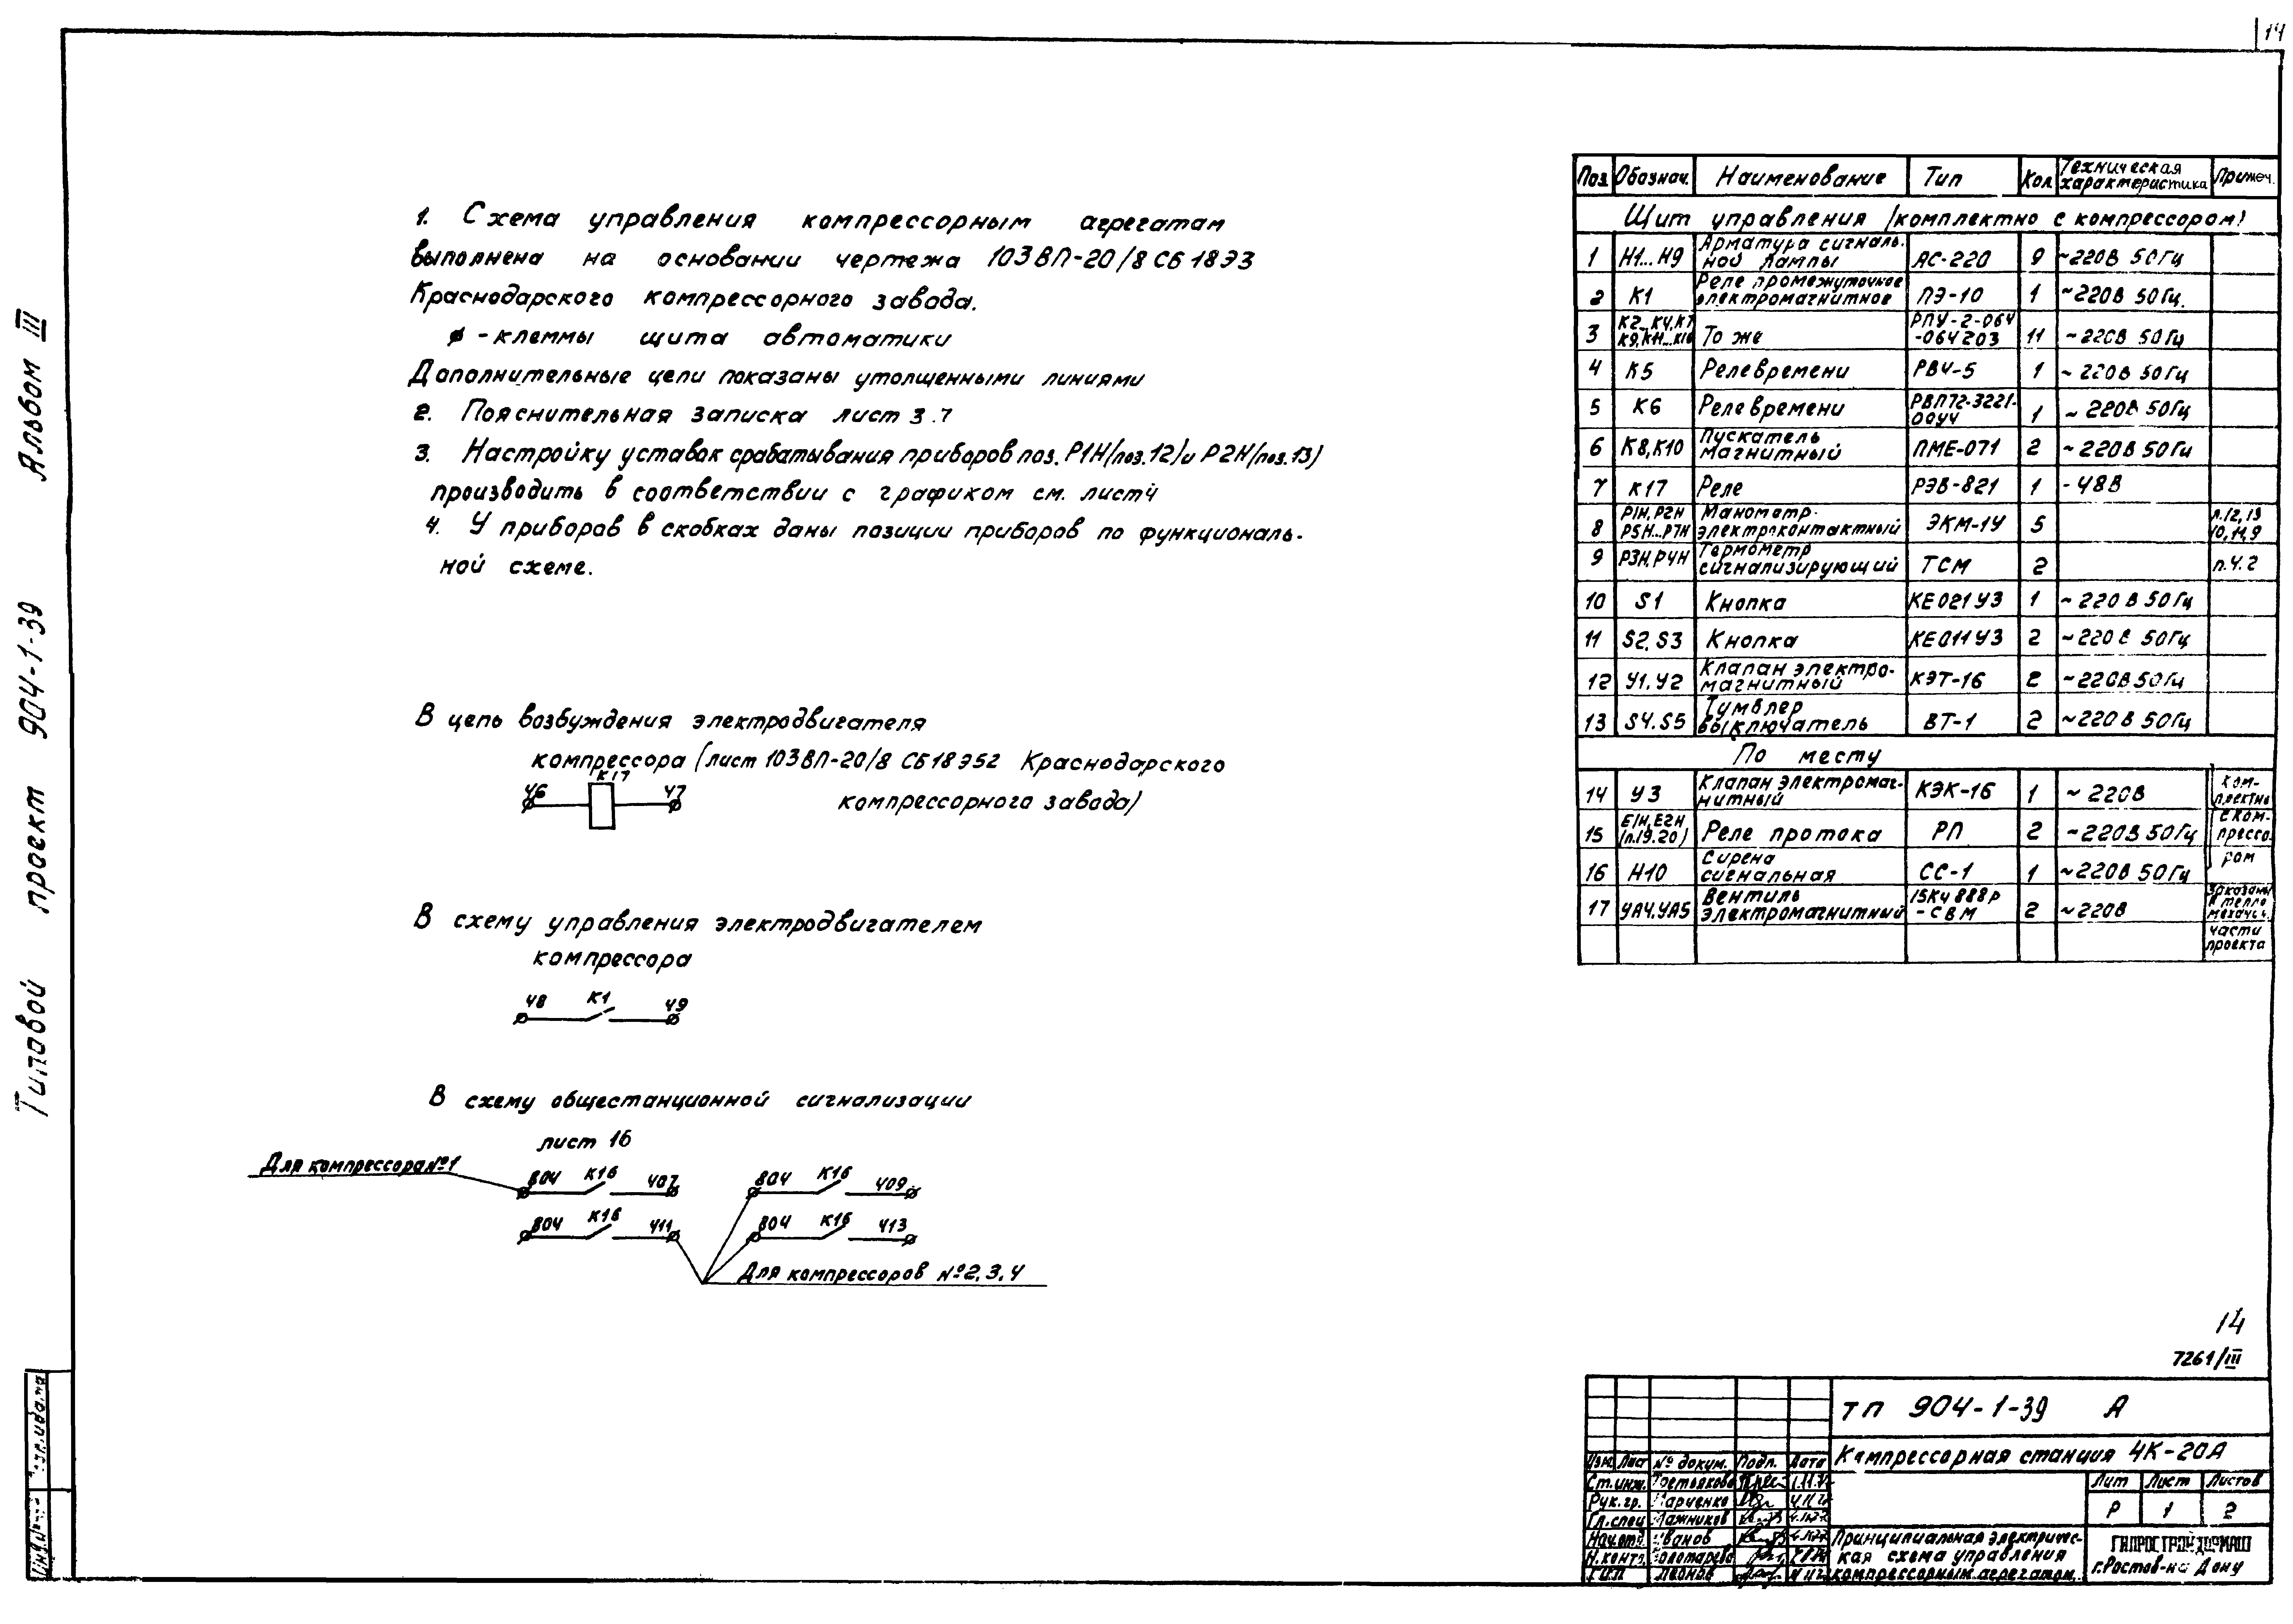 14
Типовой проект 904-1-39 Альбом III
1. Схема управления компрессорным агрегатам
выполнена на основании чертежа 103ВП-20/8 СБ 18Э3
Краснодарского компрессорного завода.
ø - клеммы щита автоматики
Дополнительные цепи показаны утолщенными линиями
2. Пояснительная записка лист 3.7
3. Настройку уставок срабатывания приборов поз. Р1Н/поз.12/ и Р2Н/поз.13)
производить в соответствии с графиком см. лист4
4. У приборов в скобках даны позиции приборов по функциональ-
ной схеме.
В цепь возбуждения электродвигателя
компрессора (лист 103ВП-20/8 СБ18Э52 Краснодарского
компрессорного завода)
46 К17 47
В схему управления электродвигателем
компрессора
48 К1 49
В схему общестанционной сигнализации
лист 16
Для компрессора №1
804 К16 407 804 К16 409
804 К16 411 804 К16 413
Для компрессоров №2,3,4
Поз Обознач. Наименование Тип Кол Техническая характеристика Примеч.
Щит управления (комплектно с компрессором)
1 Н1...Н9 Арматура сигналь-ной лампы АС-220 9 ~220В 50Гц
2 К1 Реле промежуточное электромагнитное ПЭ-10 1 ~220В 50Гц.
3 К2...К4,К7 К9,К11...К16 То же РПУ-2-064 -064203 11 ~220В 50Гц
4 К5 Реле времени РВ4-5 1 ~220В 50Гц
5 К6 Реле времени РВП72-3221-00У4 1 ~220В 50Гц
6 К8,К10 Пускатель магнитный ПМЕ-071 2 ~220В 50Гц
7 К17 Реле РЭВ-821 1 -48В
8 Р1Н,Р2Н Р5Н...Р7Н Манометр электроконтактный ЭКМ-1У 5 п.12,13 10,11,9
9 Р3Н,Р4Н Термометр сигнализирующий ТСМ 2 п.4.2
10 S1 Кнопка КЕ021У3 1 ~220В 50Гц
11 S2,S3 Кнопка КЕ011У3 2 ~220В 50Гц
12 У1,У2 Клапан электро-магнитный КЭТ-16 2 ~220В 50Гц
13 S4.S5 Тумблер выключатель ВТ-1 2 ~220В 50Гц
По месту
14 У3 Клапан электромаг-нитный КЭК-16 1 ~220В ком-плектно
15 Е1Н,Е2Н (п.19.20) Реле протока РП 2 ~220В 50Гц с ком-прессо-
16 Н10 Сирена сигнальная СС-1 1 ~220В 50Гц ром
17 УА4,УА5 Вентиль электромагнитный 15кч888р -СВМ 2 ~220В Заказаны в тепло
части проекта
14
7261/III
ТП 904-1-39 А
Компрессорная станция 4К-20А
Изм. Лист № докум. Подп. Дата
Ст.инж. Третьякова
Рук.гр. Марченко
Гл.спец
Нач.отд. Иванов
Н.контр. Золотарева
ГИП Леонов
Лит Лист Листов
Р 1 2
Принципиальная электричес-
кая схема управления
компрессорным агрегатом
ГИПРОСТРОЙДОРМАШ
г.Ростов-на Дону